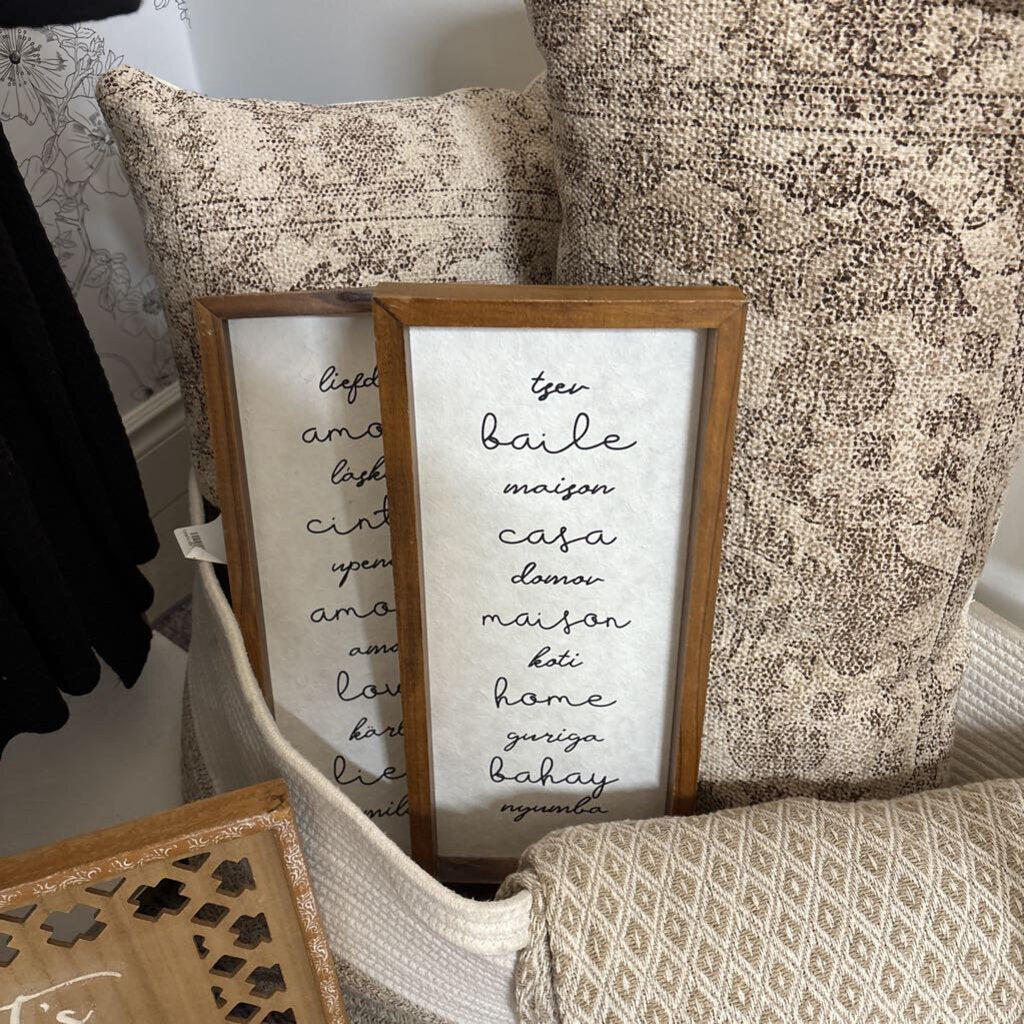 liefd
amo
lásk
cint
upen
amo
amo
lov
kärl
lie
mil
tsev
baile
maison
casa
domov
maison
koti
home
guriga
bahay
nyumba
t's